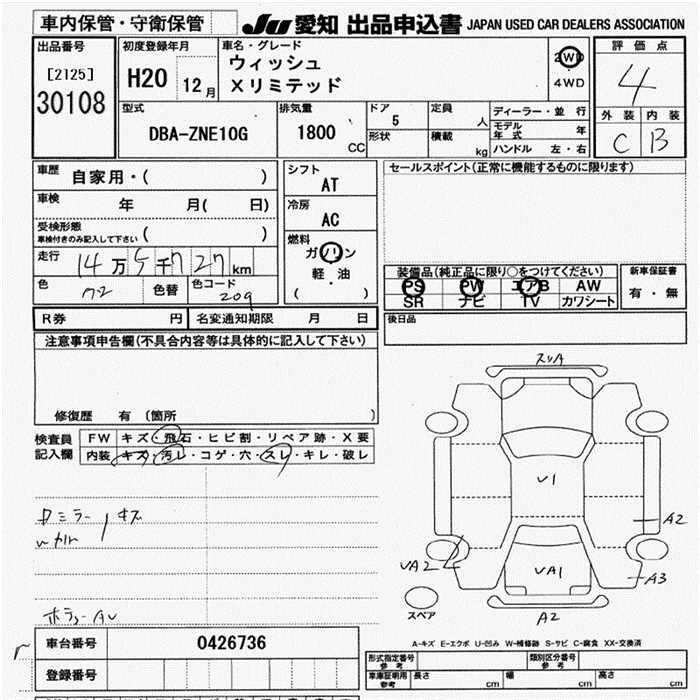 車内保管・守衛保管
JU 愛知 出品申込書 JAPAN USED CAR DEALERS ASSOCIATION
出品番号
[2125]
30108
初度登録年月
H20 12月
車名・グレード
ウィッシュ
Xリミテッド
2WD
4WD
評価点
4
外装 内装
C B
型式
DBA-ZNE10G
排気量
1800 CC
ドア
5
形状
定員
人
積載
kg
ディーラー・並行
モデル年式 年
ハンドル 左・右
車歴 自家用・( )
車検 年 月( 日)
受検形態
車検付きのみ記入して下さい ( )
走行 14万5千727km
色 色替 色コード
209
シフト
AT
冷房
AC
燃料
ガソリン
軽・油
( )
セールスポイント(正常に機能するものに限ります)
装備品(純正品に限り○をつけてください)
PS PW エアB AW
SR ナビ TV カワシート
新車保証書
有・無
後日品
R券 円 名変通知期限 月 日
注意事項申告欄(不具合内容等は具体的に記入して下さい)
修復歴 有 〔箇所 〕
検査員
記入欄
FW キズ・飛石・ヒビ割・リペア跡・X要
内装 キズ・汚レ・コゲ・穴・スレ・キレ・破レ
スリA
U1
A2
UA2
UA1
A3
A2
スペア
A-キズ E-エクボ U-凹み W-補修跡 S-サビ C-腐食 XX-交換済
車台番号 0426736
登録番号
形式指定番号
参考
類別区分番号
参考
車庫証明用
参考
長さ cm 幅 cm 高さ cm